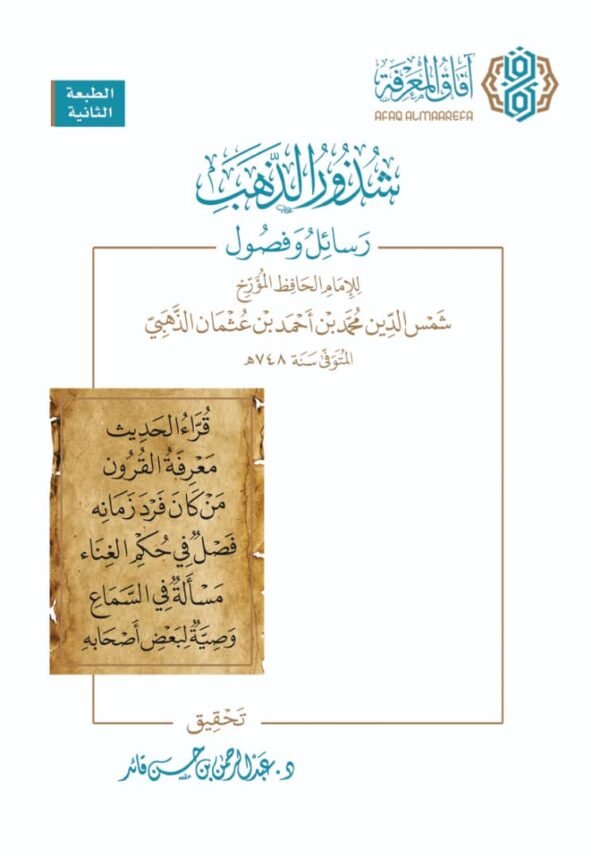 آفاق المعرفة
AFAQ ALMAAREFA
الطبعة
الثانية
شُذُورُ الذَّهَبِ
رَسَائِلُ وَفُصُول
لِلإِمَامِ الحَافِظِ المُؤَرِّخِ
شَمْسِ الدِّين مُحَمَّد بْن أَحْمَد بْن عُثْمَان الذَّهَبِيّ
المُتَوَفَّى سَنَة ٧٤٨هـ
قُرَّاءُ الحَدِيث
مَعْرِفَةُ القُرُون
مَنْ كَانَ فَرْدَ زَمَانِه
فَصْلٌ فِي حُكْمِ الغِنَاء
مَسْأَلَةٌ فِي السَّمَاعِ
وَصِيَّةٌ لِبَعْضِ أَصْحَابِهِ
تَحْقِيق
د. عبد الرحمن بن حسن قائد